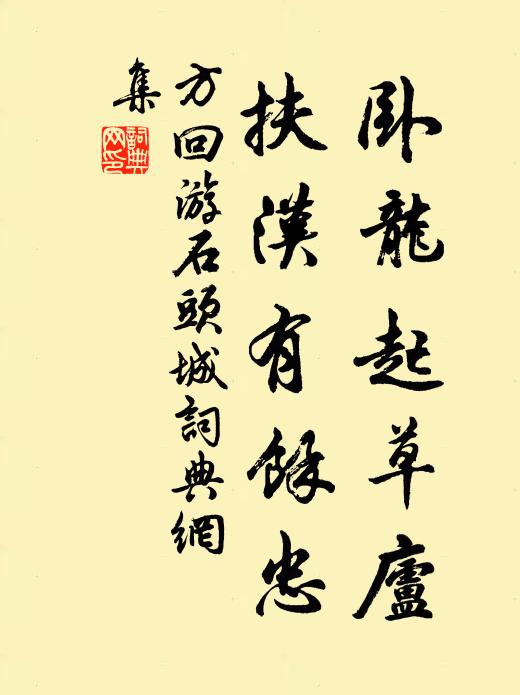 卧龍起草廬
扶漢有餘忠
方回游石頭城詞典網
集
詞典
网印